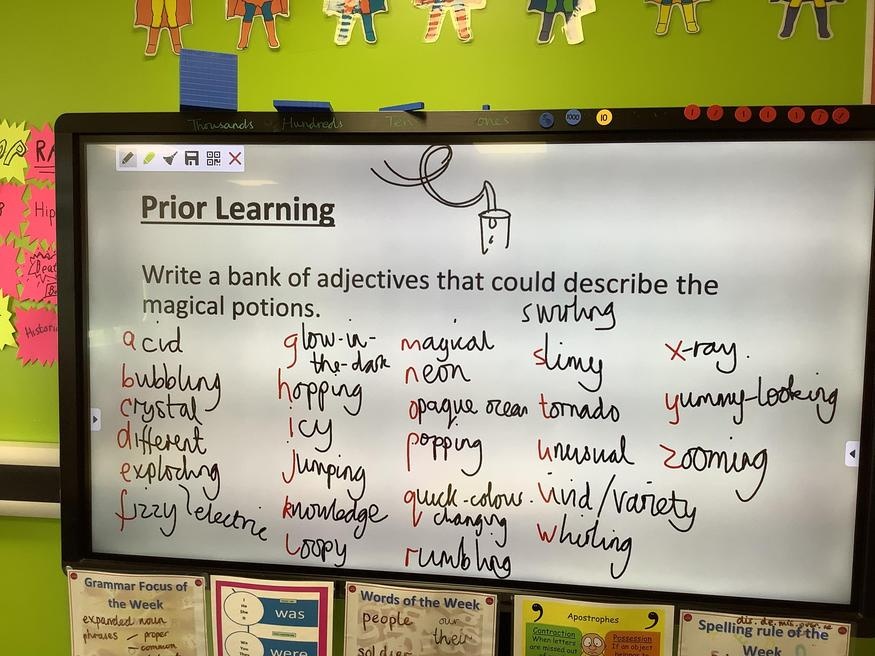 Thousands Hundreds Tens ones
1000 10
Prior Learning
Write a bank of adjectives that could describe the
magical potions.
swirling
acid
bubbling
crystal
different
exploding
fizzy electric
glow-in-
the-dark
hopping
icy
jumping
knowledge
loopy
magical
neon
opaque ocean
popping
quick-colour
changing
rumbling
slimy
tornado
unusual
vivid/variety
whirling
x-ray.
yummy-looking
zooming
Hip
Grammar Focus of
the Week
expanded noun
phrases - proper
- common
I
He
She
It
was
were
Words of the Week
people our
their
soldier
Apostrophes
Contraction
When letters
are missed out
Possession
If an object
belongs to
dis, de, mis, over, re
Spelling rule of the
Week